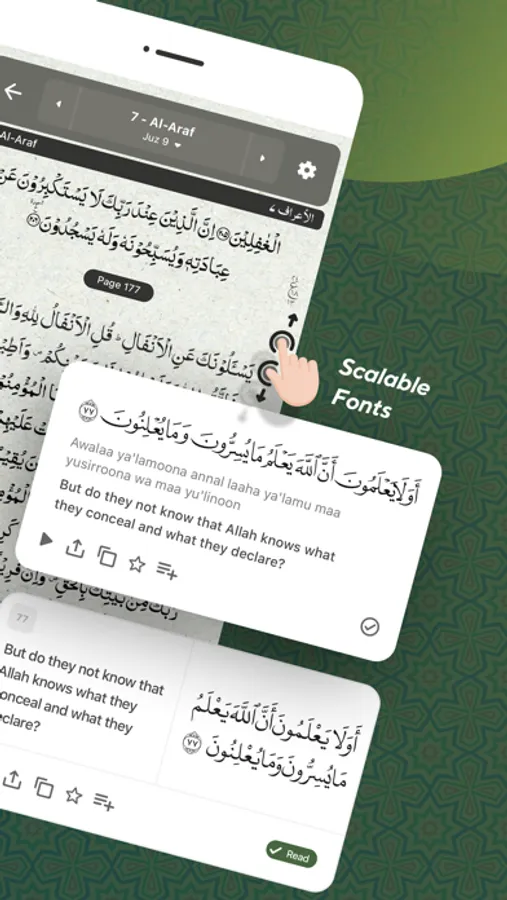 7 - Al-Araf
Juz 9
Al-Araf
الأعراف ٧
الْغٰفِلِيْنَ ۝٢٠٥ اِنَّ الَّذِيْنَ عِنْدَ رَبِّكَ لَا يَسْتَكْبِرُوْنَ عَنْ
عِبَادَتِهٖ وَيُسَبِّحُوْنَهٗ وَلَهٗ يَسْجُدُوْنَ ۝٢٠٦
Page 177
يَسْـَٔلُوْنَكَ عَنِ الْاَنْفَالِ ؕ قُلِ الْاَنْفَالُ لِلّٰهِ
Scalable
Fonts
أَوَلَا يَعْلَمُونَ أَنَّ ٱللَّهَ يَعْلَمُ مَا يُسِرُّونَ وَمَا يُعْلِنُونَ ٧٧
Awalaa ya'lamoona annal laaha ya'lamu maa
yusirroona wa maa yu'linoon
But do they not know that Allah knows what
they conceal and what they declare?
رَبُّكَ مِنْ بَيْتِكَ بِالْحَقِّ
77
But do they not know that
Allah knows what they
conceal and what they
declare?
أَوَلَا يَعْلَمُونَ أَنَّ ٱللَّهَ يَعْلَمُ
مَا يُسِرُّونَ وَمَا يُعْلِنُونَ ٧٧
Read